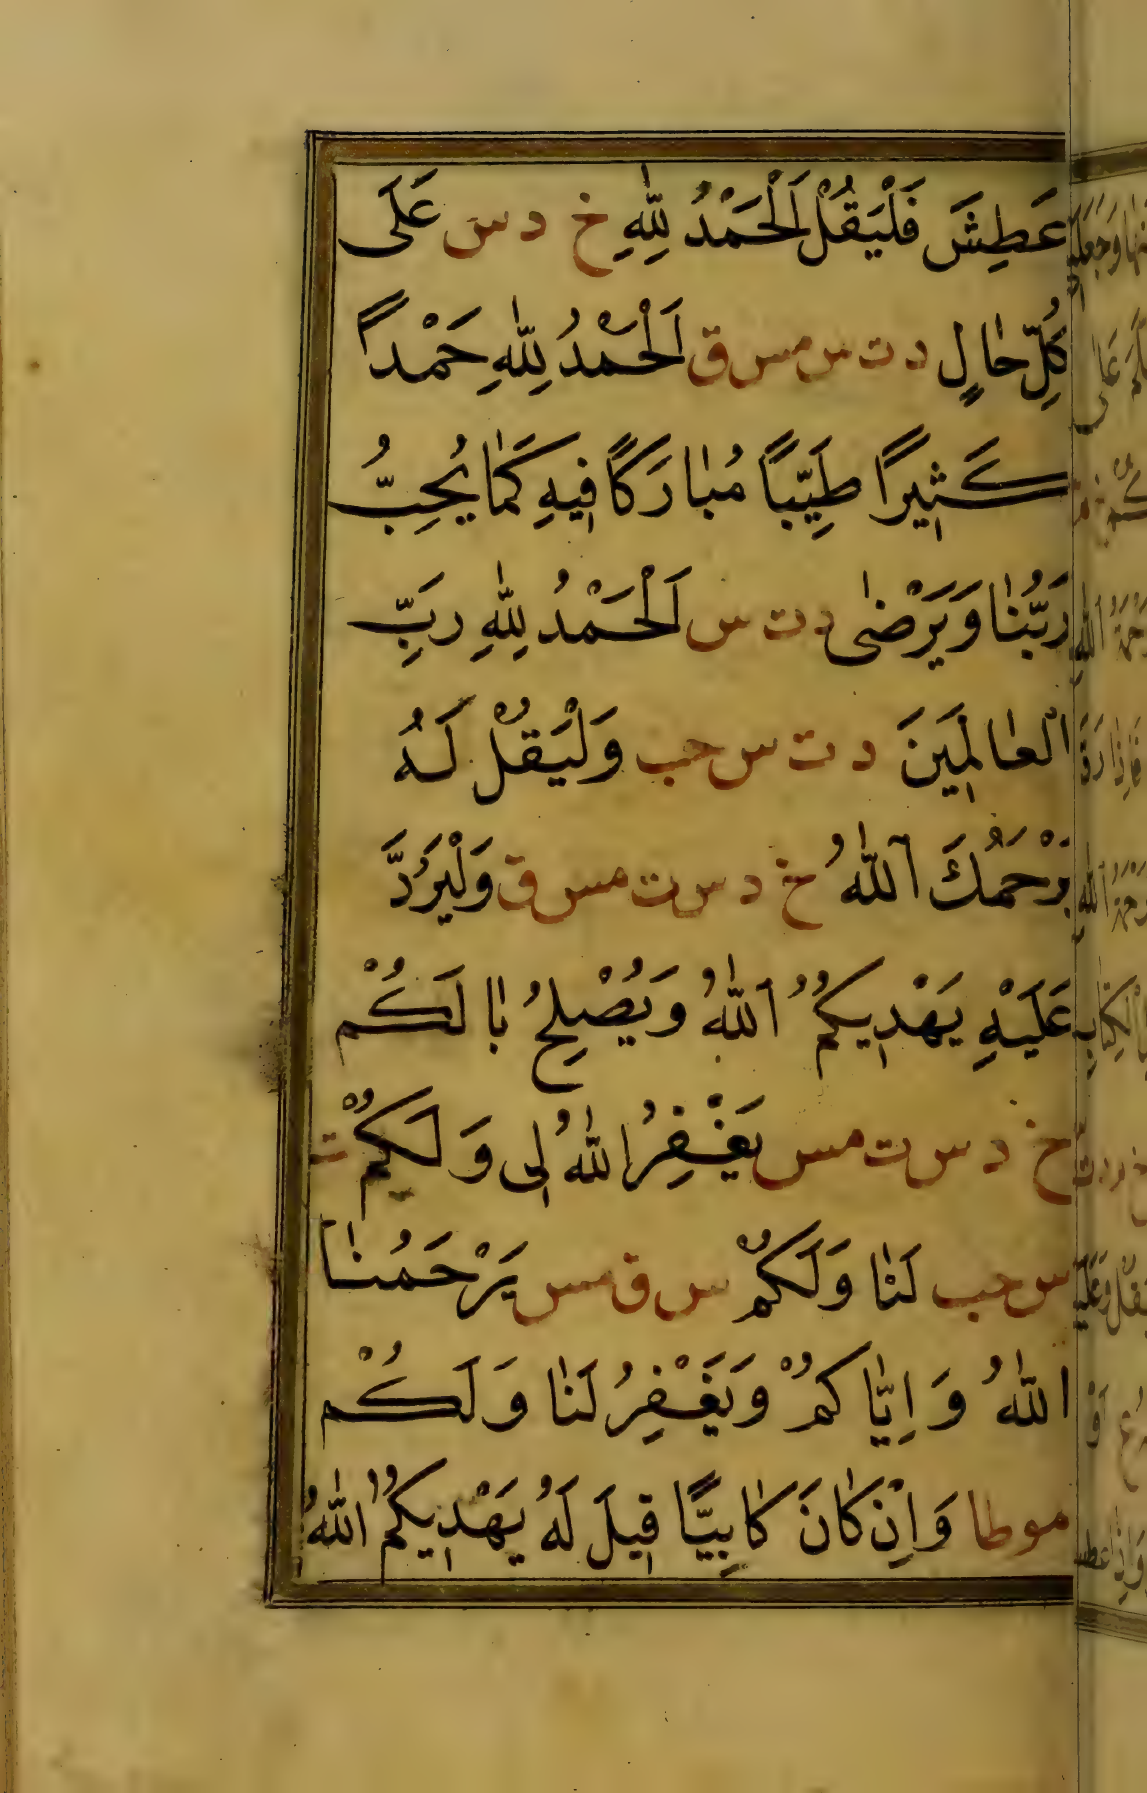 عَطِشَ فَلْيَقُلْ اَلْحَمْدُ لِلّٰهِ خ د س عَلَى
كُلِّ حَالٍ د ت س مس ق اَلْحَمْدُ لِلّٰهِ حَمْدًا
كَثِيرًا طَيِّبًا مُبَارَكًا فِيهِ كَمَا يُحِبُّ
رَبُّنَا وَيَرْضٰى د ت س اَلْحَمْدُ لِلّٰهِ رَبِّ
الْعَالَمِينَ د ت س حب وَلْيَقُلْ لَهُ
يَرْحَمُكَ اللّٰهُ خ د س ت مس ق وَلْيَرُدَّ
عَلَيْهِ يَهْدِيكُمُ اللّٰهُ وَيُصْلِحُ بَالَكُمْ
خ د س ت مس يَغْفِرُ اللّٰهُ لِى وَلَكُمْ ت
س حب لَنَا وَلَكُمْ س ق مس يَرْحَمُنَا
اللّٰهُ وَاِيَّاكُمْ وَيَغْفِرُ لَنَا وَلَكُمْ
موطا وَاِنْ كَانَ كَابِيًّا قِيلَ لَهُ يَهْدِيكُمُ اللّٰهُ